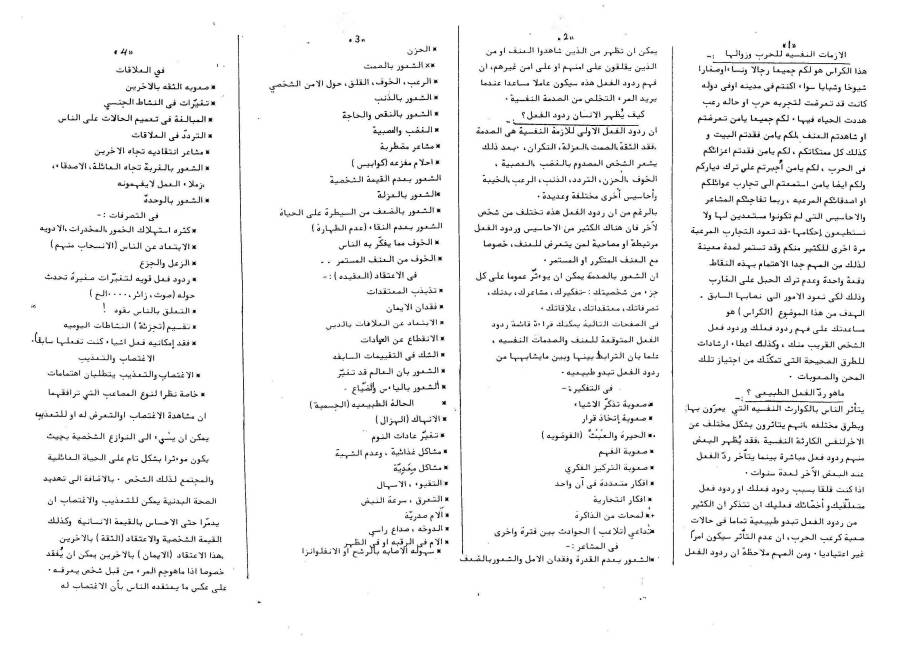 «1»
الازمات النفسيه للحرب وزوالها :-
هذا الكراس هو لكم جميعا رجالا ونساء اوصغارا
شيوخا وشبابا سواء اكنتم في مدينه اوفى دوله
كانت قد تعرضت لتجربه حرب او حاله رعب
هددت الحياه فيها . لكم جميعا يامن تعرضتم
او شاهدتم العنف .لكم يامن فقدتم البيت و
كذلك كل ممتلكاتكم , لكم يامن فقدتم اعزائكم
في الحرب , لكم يامن أُجبرتم على ترك دياركم
ولكم ايضا يامن استمعتم الى تجارب عوائلكم
او اصدقائكم المرعبه , ربما تفاجئكم المشاعر
والاحاسيس التى لم تكونوا مستعدين لها ولا
تستطيعون إحكامها .قد تعود التجارب المرعبة
مرة اخرى للكثير منكم وقد تستمر لمدة معينة
لذلك من المهم جدا الاهتمام بهذه النقاط
دفعة واحدة وعدم ترك الحبل على الغارب
وذلك لكى تعود الامور الى نصابها السابق .
الهدف من هذا الموضوع (الكراس ) هو
مساعدتك على فهم ردود فعلك وردود فعل
الشخص القريب منك , وكذلك اعطاء ارشادات
للطرق الصحيحة التى تمكّنك من اجتياز تلك
المحن والصعوبات .
ماهو ردّ الفعل الطبيعى ؟
يتأثر الناس بالكوارث النفسيه التي يمرّون بها,
وبطرق مختلفه ,انهم يتاثرون بشكل مختلف عن
الاخرلنفس الكارثة النفسية .فقد يُظهر البعض
منهم ردود فعل مباشرة بينما يتأخر ردّ الفعل
عند البعض الآخر لعدة سنوات .
اذا كنت قلقا بسبب ردود فعلك او ردود فعل
متعلّقيك و أخصّائك فعليك ان تتذكر ان الكثير
من ردود الفعل تبدو طبيعية تماما فى حالات
صعبة كرعب الحرب , ان عدم التأثر سيكون امراً
غير اعتياديا . ومن المهم ملاحظة ان ردود الفعل
«2»
يمكن ان تظهر من الذين شاهدوا العنف او من
الذين يقلقون على امنهم او على امن غيرهم, ان
فهم ردود الفعل هذه سيكون عاملا مساعدا عندما
يريد المرء التخلص من الصدمة النفسية .
كيف يُظهر الانسان ردود الفعل ؟
ان ردود الفعل الاولى للأزمة النفسية هى الصدمة
,فقد الثقة,الصمت,العزلة, النكران , بعد ذلك
يشعر الشخص المصدوم بالغضب ,العصبية ,
الخوف ,الحُزن, التردد, الذنب, الرعب,الخيبة
وأحاسيس أخرى مختلفة وعديدة .
بالرغم من ان ردود الفعل هذه تختلف من شخص
لآخر فان هناك الكثير من الاحاسيس وردود الفعل
مرتبطة او مصاحبة لمن يتعرض للعنف, خصوصا
مع العنف المتكرر او المستمر .
ان الشعور بالصدمة يمكن ان يوءثّر عموما على كل
جزء من شخصيتك :-تفكيرك , مشاعرك, بدنك,
تصرفاتك, معتقداتك, علاقاتك .
فى الصفحات التالية يمكنك قراءة قائمة ردود
الفعل المتوقعة للعنف والصدمات النفسيه ,
علما بان الترابط بينها وبين مايشابهها من
ردود الفعل تبدو طبيعيه .
فى التفكير :-
* صعوبة تذكّر الاشياء
* صعوبة إتخاذ قرار
* الحيرة والعَبَثْ ( الفوضويه )
* صعوبة الفهم
* صعوبة التركيز الفكري
* افكار متعددة فى آن واحد
* افكار انتحارية
* لمحات من الذاكرة
* تداعي (تلاعب ) الحوادث بين فترة واخرى
فى المشاعر :-
*الشعور بعدم القدرة وفقدان الامل والشعوربالضعف
«3»
* الحزن
** الشعور بالصمت
* الرعب, الخوف, القلق, حول الامن الشخصي
* الشعور بالذنب
* الشعور بالنقص والحاجة
* الغضب والعصبية
* مشاعر مضطربة
* احلام مفزعه (كوابيس )
الشعور بعدم القيمة الشخصية
*الشعور بالعزلة
* الشعور بالضعف من السيطرة على الحياة
الشعور بعدم النقاء (عدم الطهارة )
* الخوف مما يفكر به الناس
* الخوف من العنف المستمر ..
فى الاعتقاد (العقيده ) :-
* تذبذب المعتقدات
* فقدان الايمان
* الابتعاد عن العلاقات بالدين
* الانقطاع عن العادات
* الشك في التقييمات السابقه
* الشعور بان العالم قد تغيّر
* الشعور بالياءس والضَياع .
* الحالة الطبيعيه (الجسمية )
* الانهاك (الهزال )
* تغيّر عادات النوم
* مشاكل غذائية , وعدم الشهية
* مشاكل معِديّة
* التقيوء , الاسهال
* التعرق , سرعة النبض
* آلام صدريّة
* الدوخه , صداع راسي
* الام فى الرقبه او فى الظهر
* سهوله الاصابه بالرشح او الانفلوانزا
«4»
في العلاقات
* صعوبه الثقه بالآخرين
* تغيّرات فى النشاط الجنسي
* المبالغة فى تعميم الحالات على الناس
* التردّد فى العلاقات
* مشاعر انتقاديه تجاه الآخرين
* الشعور بالغربة تجاه العائلة, الاصدقاء,
,زملاء العمل لايفهمونه
* الشعور بالوحدة
فى التصرفات :-
* كثره استهلاك الخمور,المخدرات, الادويه
* الابتعاد عن الناس (الانسحاب منهم )
* الزعل والجزع
* ردود فعل قويه لتغيّرات صغيرة تحدث
حوله (صوت, زائر,....الخ )
* التعلق بالناس بقوه !
* تقسيم (تجزئة ) النشاطات اليوميه
* فقد إمكانيه فعل اشياء كنت تفعلها سابقاً.
الاغتصاب والتعذيب
* الاغتصاب والتعذيب يتطلبان اهتمامات
* خاصة نظرا لنوع المصاعب التي ترافقهما
ان مشاهدة الاغتصاب اوالتعرض له او للتعذيب
يمكن ان يسُيء الى النوازع الشخصية بحيث
يكون موءثرا بشكل تام على الحياة العائلية
والمجتمع لذلك الشخص . بالاضافة الى تهديد
الصحة البدنية يمكن للتعذيب والاغتصاب ان
يدمّرا حتى الاحساس بالقيمة الانسانية وكذلك
القيمة الشخصية والاعتقاد (الثقة ) بالاخرين
,هذا الاعتقاد (الايمان ) بالاخرين يمكن ان يُفقد
خصوصا اذا ماهوجم المرء من قبل شخص يعرفه .
على عكس ما يعتقده الناس بأن الاغتصاب له